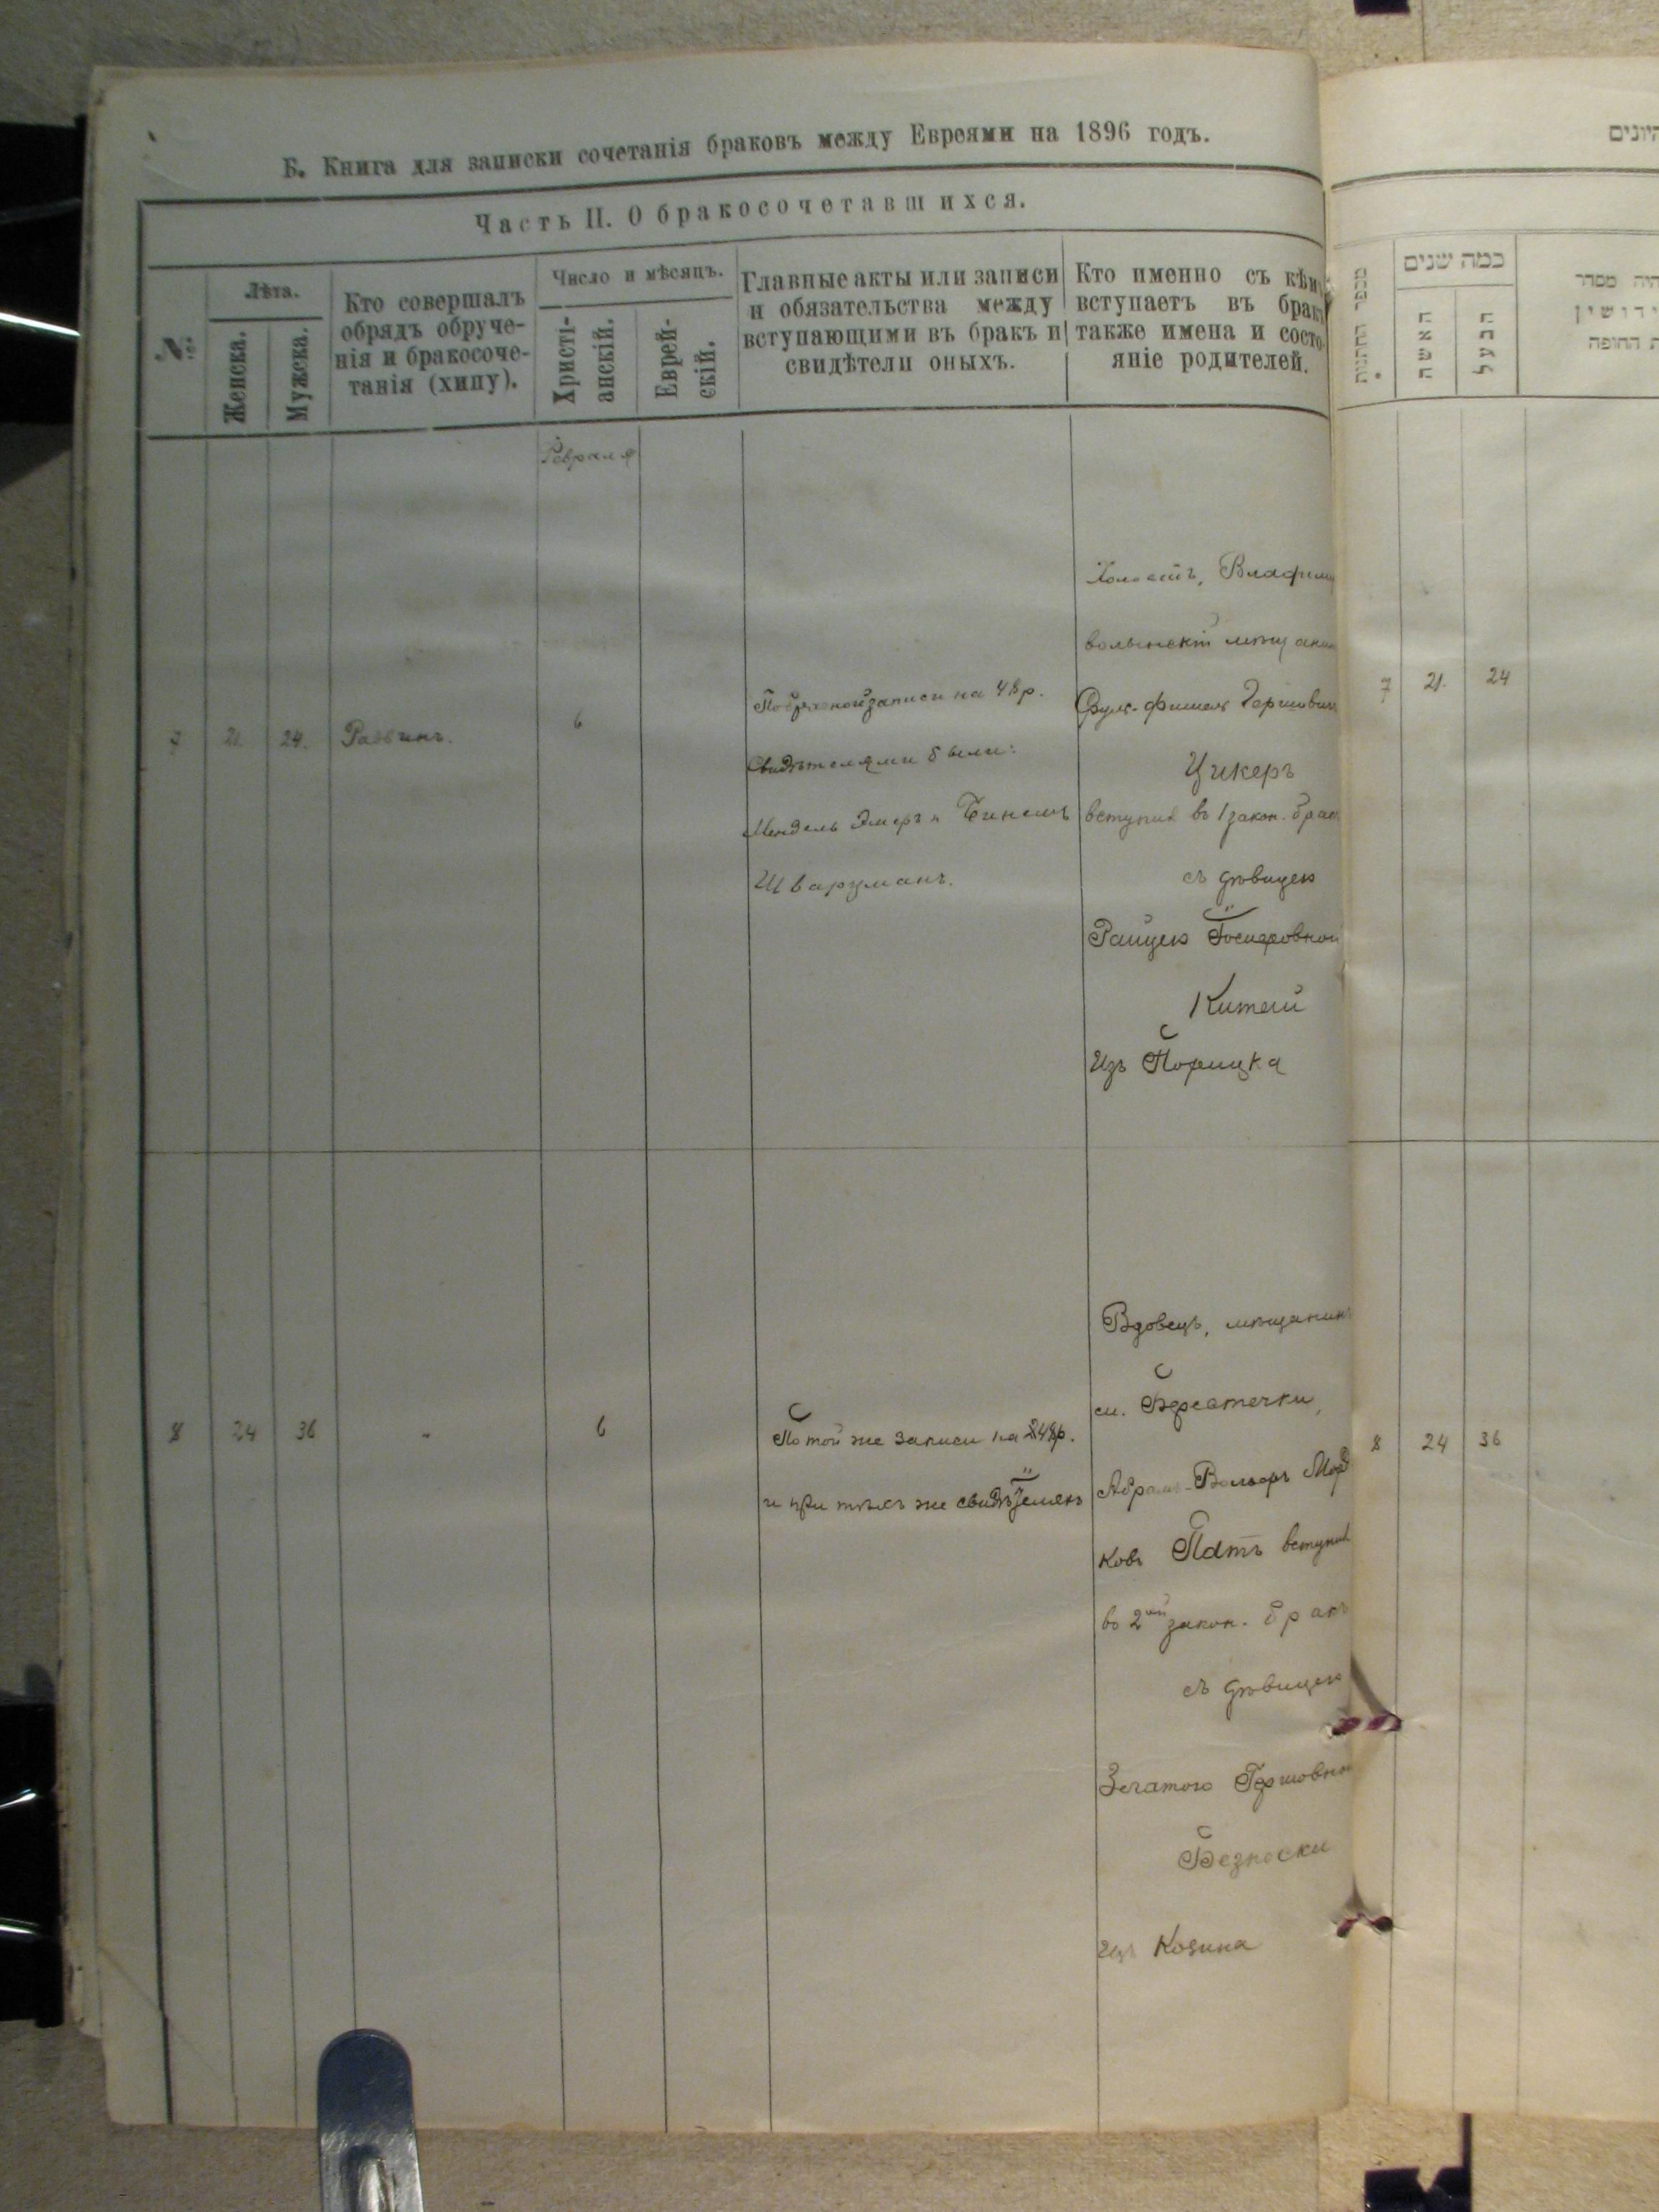 Б. Книга для записки сочетанія браковъ между Евреями на 1896 годъ.
Часть II. О бракосочетавшихся.
№
Лѣта.
Женска.
Мужска.
Кто совершалъ
обрядъ обруче-
нія и бракосоче-
танія (хипу).
Число и мѣсяцъ.
Христі-
анскій.
Еврей-
скій.
Главные акты или записи
и обязательства между
вступающими въ бракъ и
свидѣтели оныхъ.
Кто именно съ кѣмъ
вступаетъ въ бракъ
также имена и состо-
яніе родителей.
Февраля
7
21.
24.
Раввинъ.
6
По брачной записи на 48 р.
Свидѣтелями были:
Мендель Эмеръ и
Шварцманъ.
Холостъ, Владими
волынскій мѣщанин
Фишель Гершович
Цикеръ
вступил въ 1 закон. брак
съ дѣвицею
Райцею Іосиповной
Китей
Изъ Порицка
8
24
36
"
6
По той же записи на 248р.
и при тѣхъ же свидѣтелях
Вдовецъ, мѣщанинъ
м. Берестечки,
Абрамъ-Вольфъ Морд
ковъ Патъ вступил
во 2ой закон. бракъ
съ дѣвицею
Златою Гершовно
Безноски
Изъ Козина
היונים
מספר החתונות
כמה שנים
האשה
הבעל
היה מסדר
ת החופה
7
21.
24
8
24
36